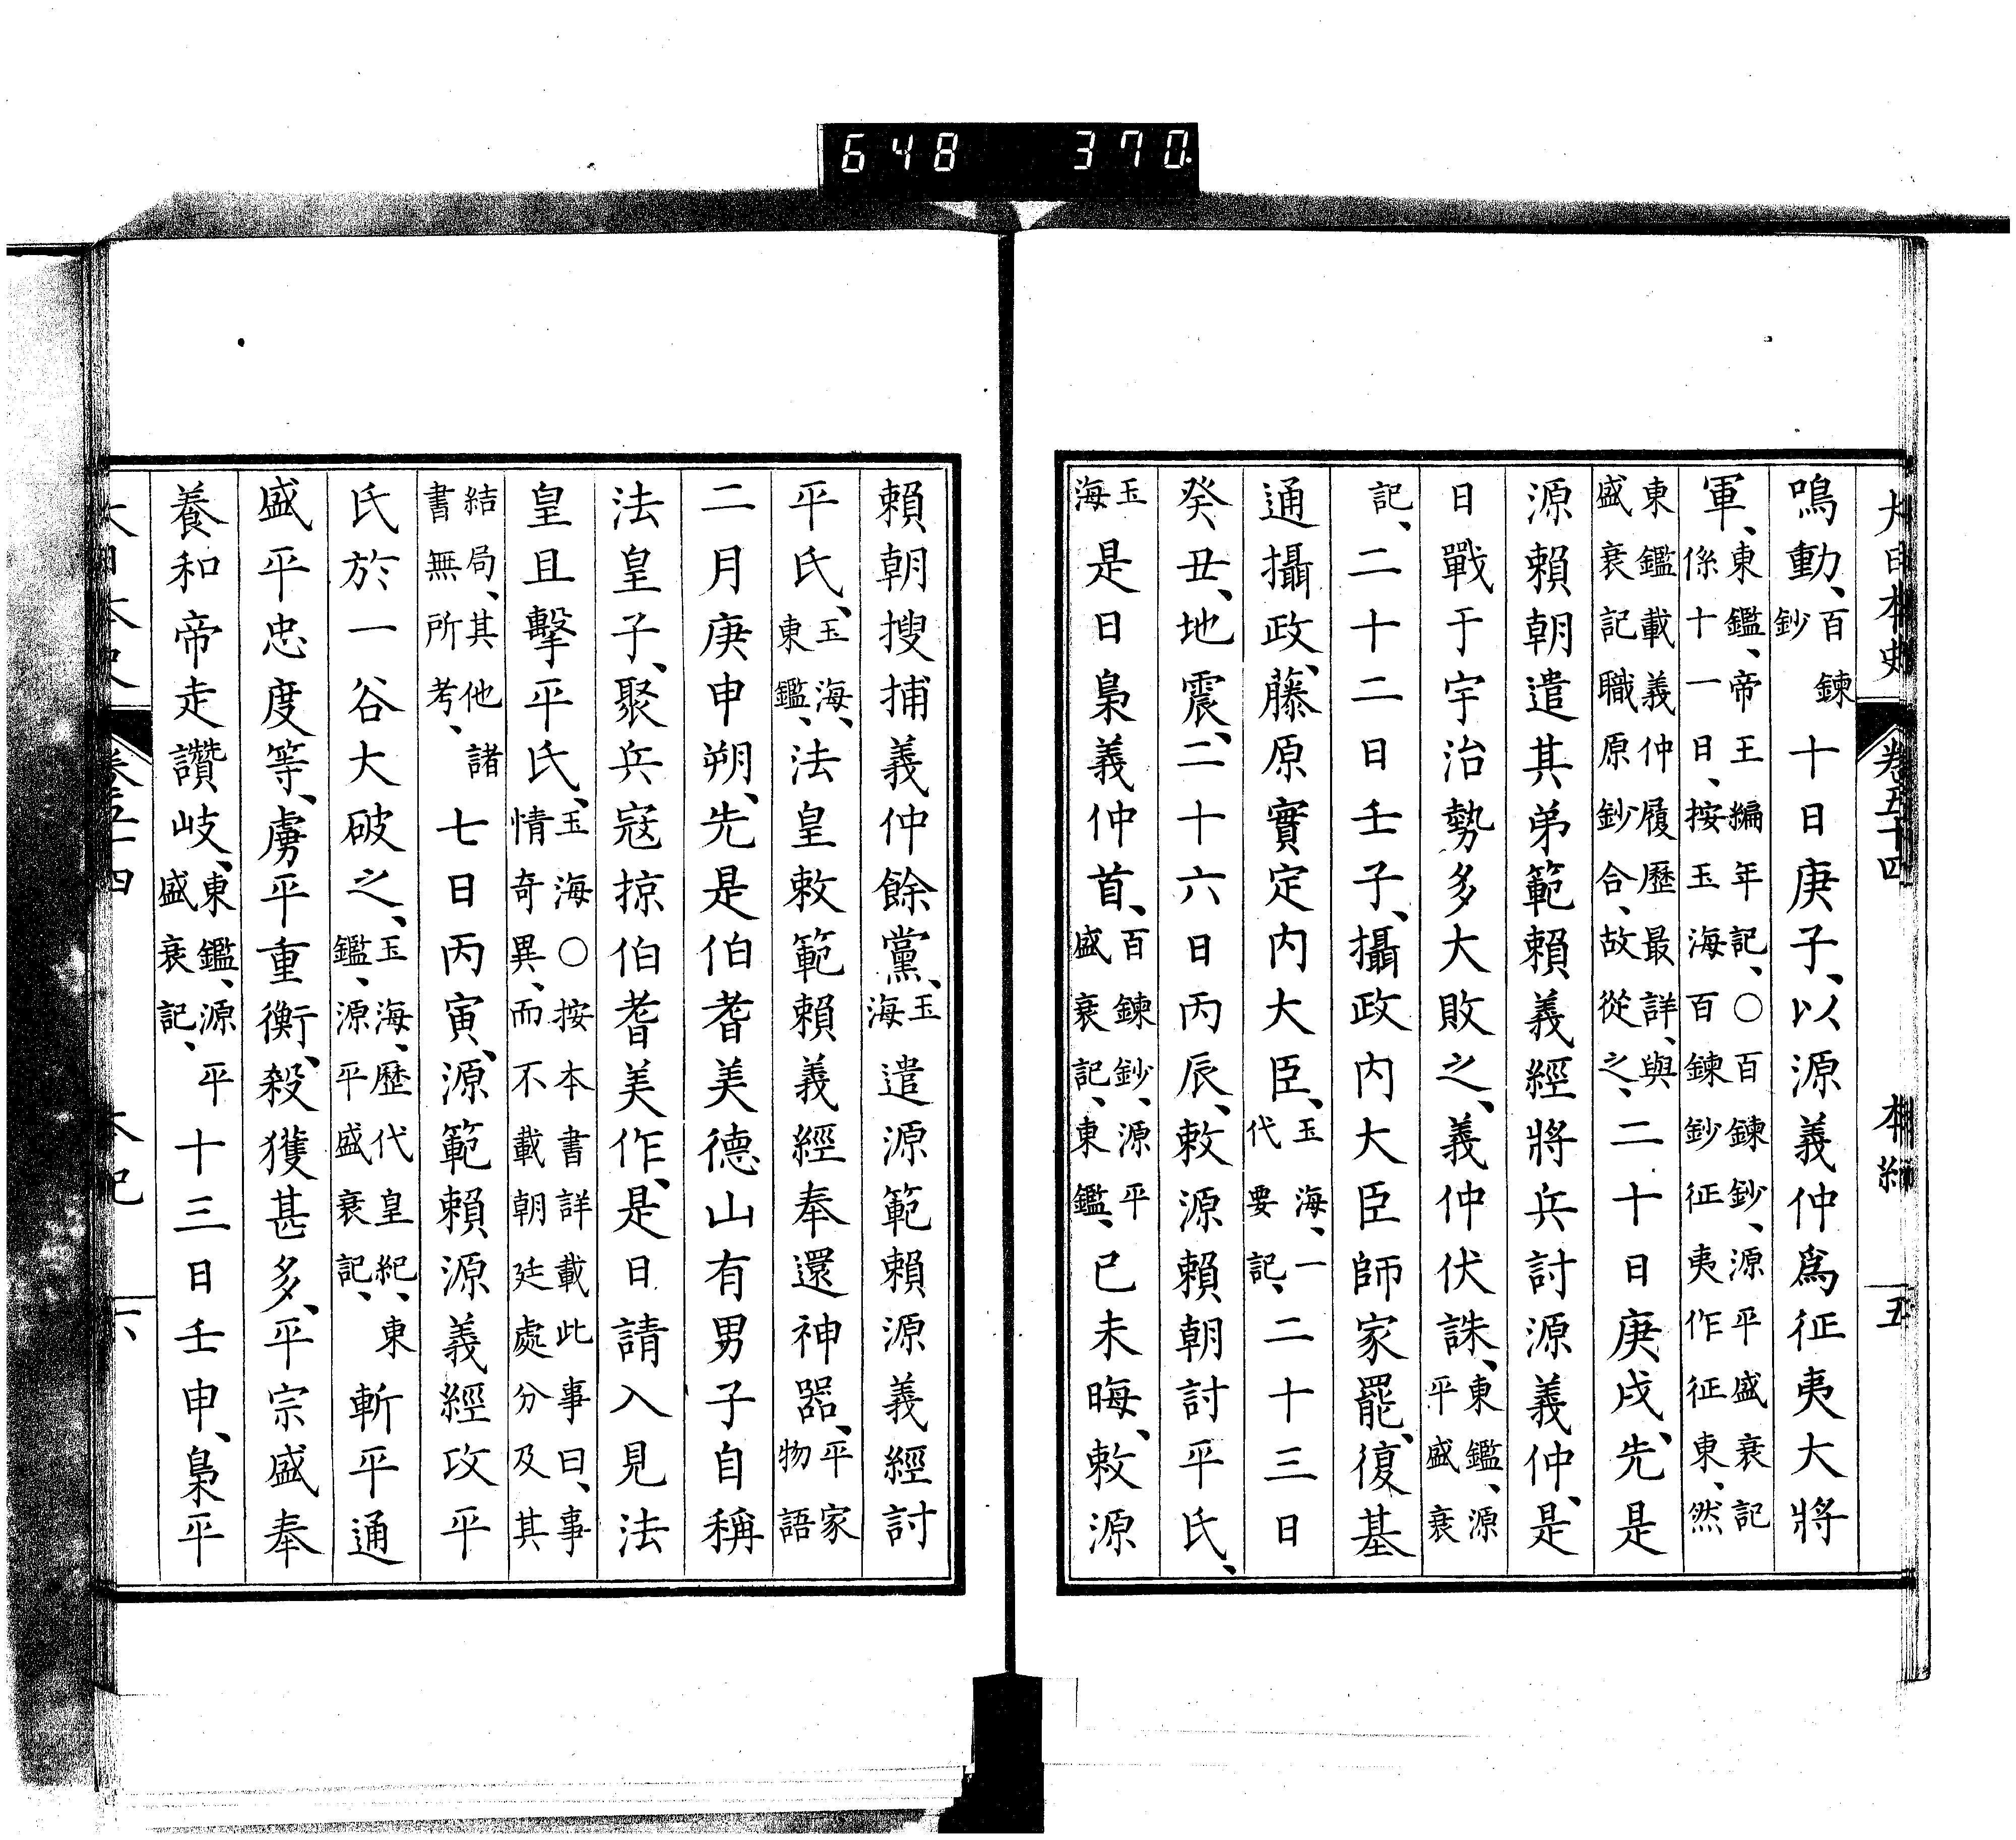 648 370.
大日本史 卷五十四 本紀 五
鳴動、百鍊鈔十日庚子、以源義仲爲征夷大將
軍、東鑑、帝王編年記、○百鍊鈔、源平盛衰記係十一日、按玉海百鍊鈔征夷作征東、然
東鑑載義仲履歷最詳、與盛衰記職原鈔合、故從之、二十日庚戌、先是
源賴朝遣其弟範賴義經將兵討源義仲、是
日戰于宇治勢多大敗之、義仲伏誅、東鑑、源平盛衰
記、二十二日壬子、攝政内大臣師家罷、復基
通攝政、藤原實定内大臣、玉海、一代要記、二十三日
癸丑、地震、二十六日丙辰、敕源賴朝討平氏、
玉海是日梟義仲首、百鍊鈔、源平盛衰記、東鑑、己未晦、敕源
賴朝搜捕義仲餘黨、玉海遣源範賴源義經討
平氏、玉海、東鑑、法皇敕範賴義經奉還神器、平家物語
二月庚申朔、先是伯耆美德山有男子自稱
法皇子、聚兵寇掠伯耆美作、是日請入見法
皇且擊平氏、玉海○按本書詳載此事曰、事情奇異、而不載朝廷處分及其
結局、其他諸書無所考、七日丙寅、源範賴源義經攻平
氏於一谷大破之、玉海、歷代皇紀、東鑑、源平盛衰記、斬平通
盛平忠度等、虜平重衡、殺獲甚多、平宗盛奉
養和帝走讚岐、東鑑、源平盛衰記、十三日壬申、梟平
大日本史 卷五十四 本紀 六